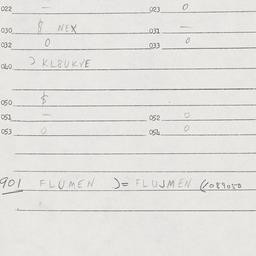 022 — 023 0
030 $ NEX 031 —
032 0 033 0
040
050 $
051 — 052 0
053 0 054 0
901 FLUMEN )= FLUJMEN (/089050